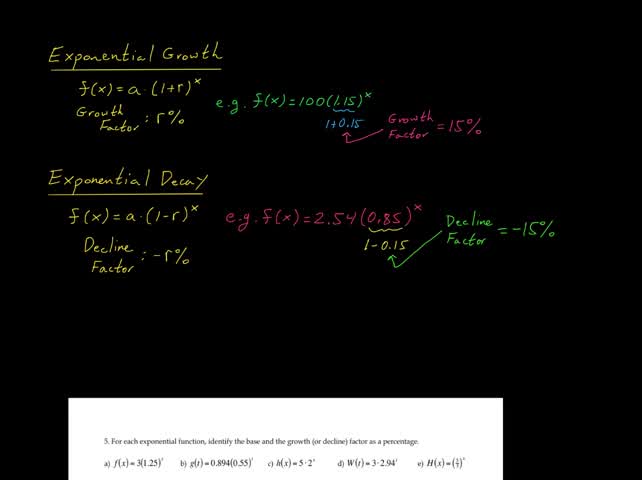 Exponential Growth
f(x) = a · (1+r)^x
Growth Factor : r%
e.g. f(x) = 100(1.15)^x
1+0.15
Growth Factor = 15%
Exponential Decay
f(x) = a · (1-r)^x
Decline Factor : -r%
e.g. f(x) = 2.54(0.85)^x
1-0.15
Decline Factor = -15%
5. For each exponential function, identify the base and the growth (or decline) factor as a percentage.
a) f(x) = 3(1.25)^x b) g(t) = 0.894(0.55)^t c) h(x) = 5·2^x d) W(t) = 3·2.94^t e)